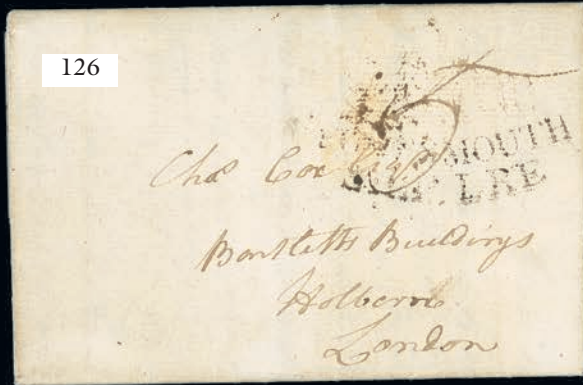 126
MOUTH
Chas Cox
LRE
Bartletts Buildings
Holborn
London